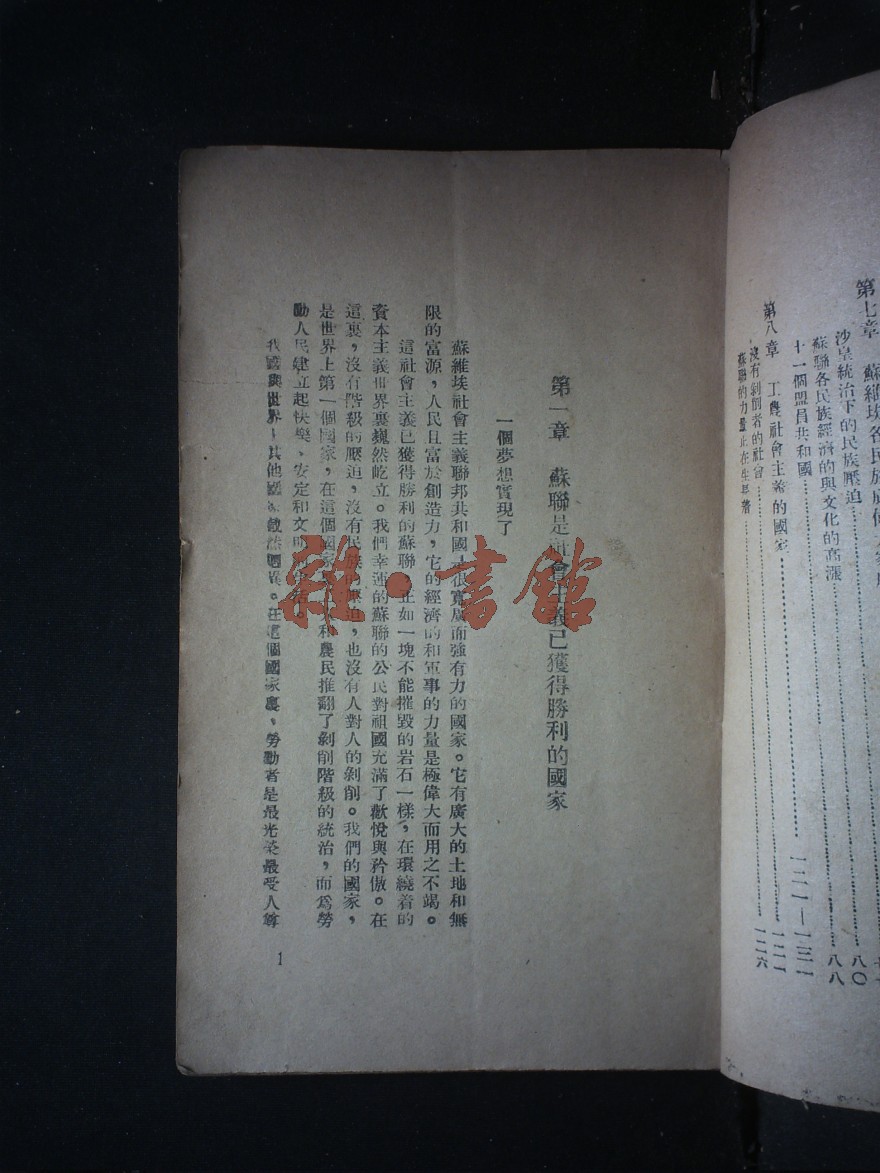 第七章　蘇維埃各民族
沙皇統治下的民族壓迫……八〇
蘇聯各民族經濟的與文化的高漲……八八
十一個盟員共和國……
第八章　工農社會主義的國家……一二一—一三一
沒有剝削者的社會……一二一
蘇聯的力量正在生長着……一二六
第一章　蘇聯是社會主義已獲得勝利的國家
一個夢想實現了
蘇維埃社會主義聯邦共和國，很寬廣而強有力的國家。它有廣大的土地和無
限的富源，人民且富於創造力，它的經濟的和軍事的力量是極偉大而用之不竭。
這社會主義已獲得勝利的蘇聯，正如一塊不能摧毀的岩石一樣，在環繞着的
資本主義世界裏巍然屹立。我們幸運的蘇聯的公民對祖國充滿了歡悅與矜傲。在
這裏，沒有階級的壓迫，沒有民族的壓迫，也沒有人對人的剝削。我們的國家，
是世界上第一個國家，在這個國家和農民推翻了剝削階級的統治，而爲勞
動人民建立起快樂、安定和文明生活。
我國與世界上其他國家截然迥異。在這個國家裏，勞動者是最光榮最受人尊
1
雜·書館